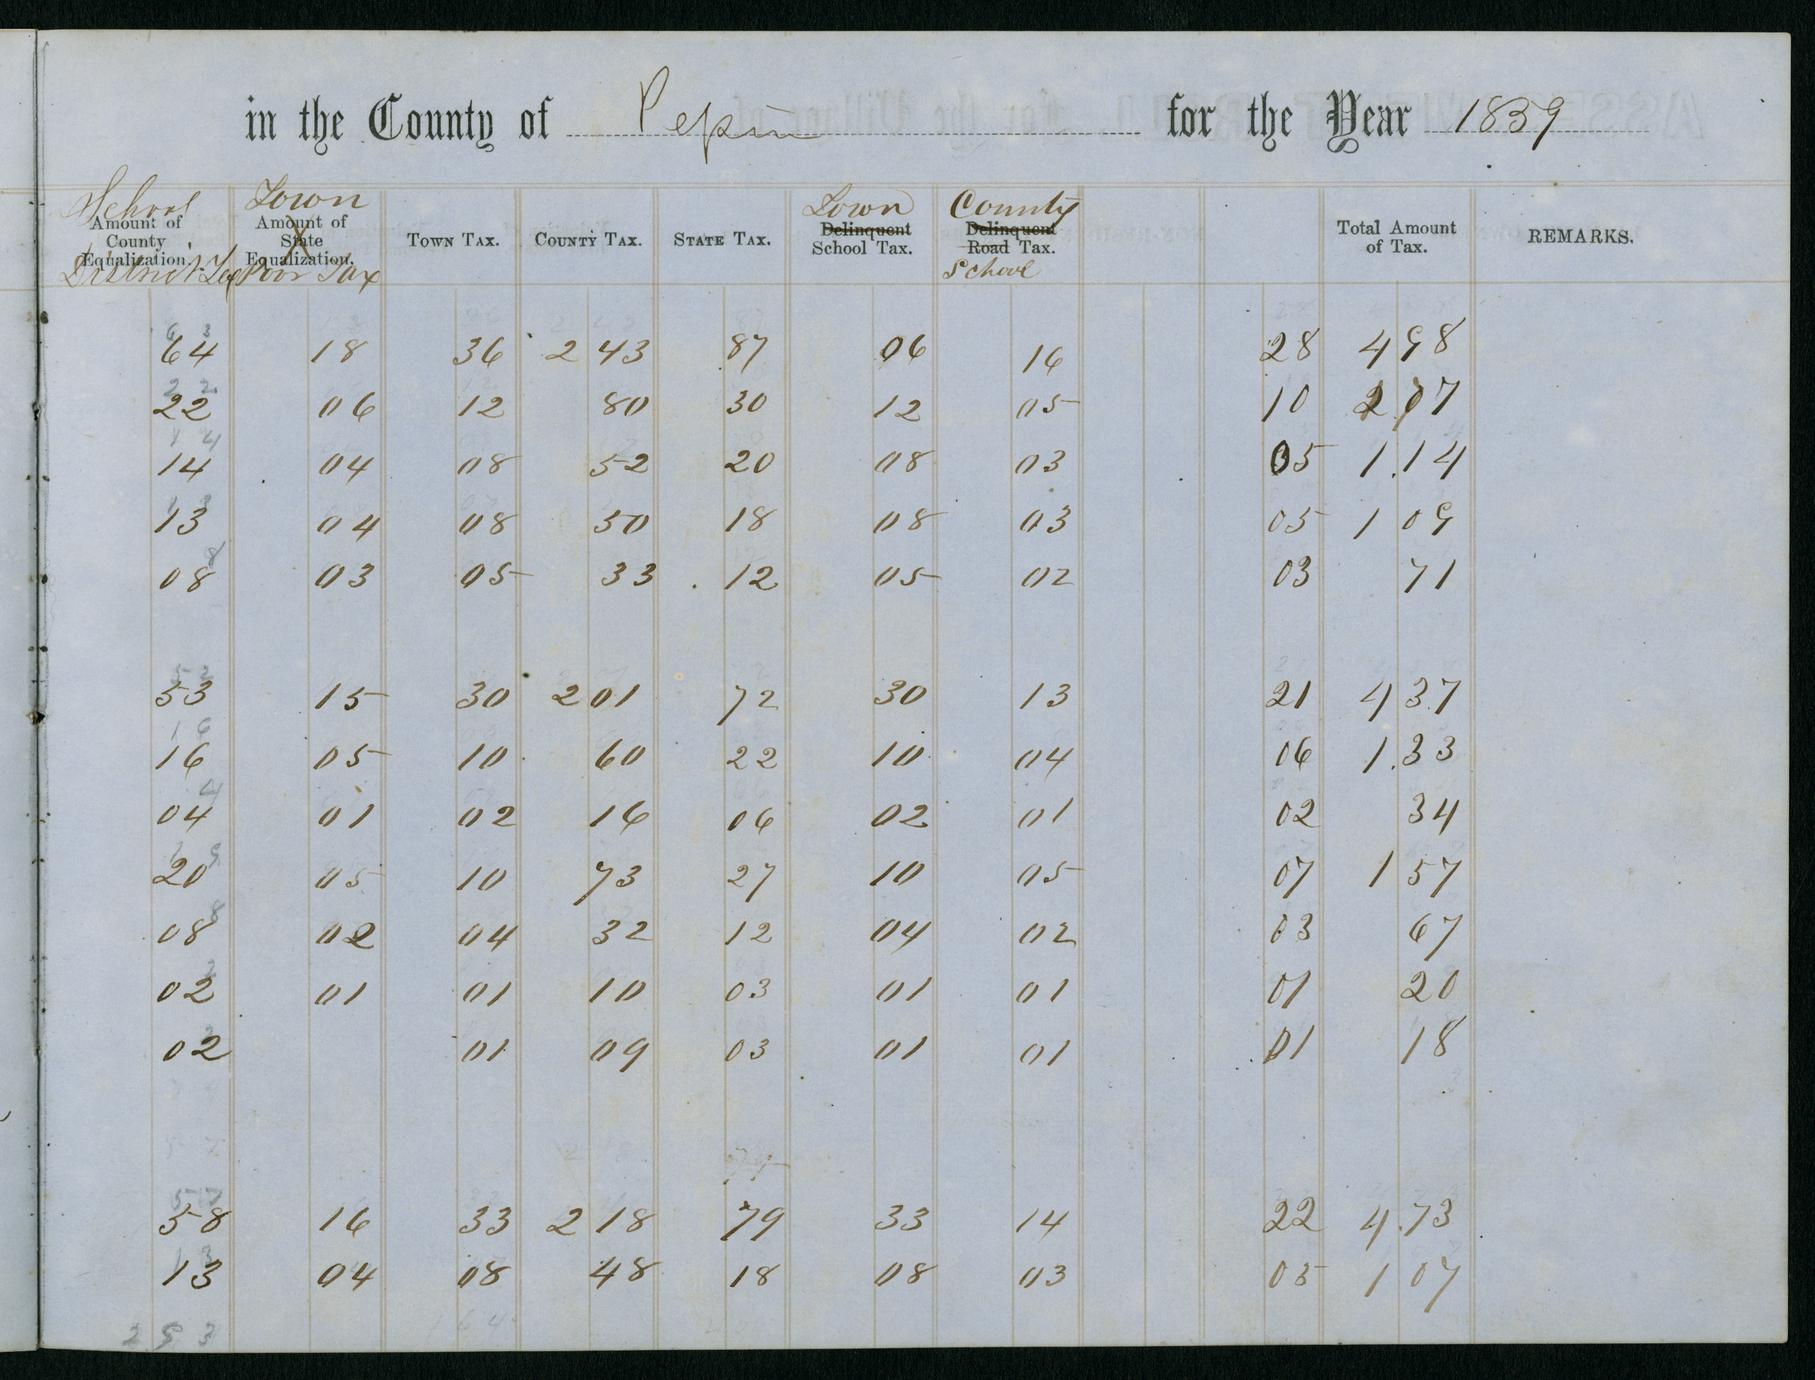 in the County of Pepin for the Year 1859
School Town Town County
Amount of County Equalization. Amount of State Equalization. Town Tax. County Tax. State Tax. Delinquent School Tax. Delinquent Road Tax. Total Amount of Tax. REMARKS.
District Tax Poor Tax School
64 18 36 2 43 87 06 16 28 4 98
22 06 12 80 30 12 05 10 2 07
14 04 08 52 20 08 03 05 1.14
13 04 08 50 18 08 03 05 1 09
08 03 05 33 12 05 02 03 71
53 15 30 2 01 72 30 13 21 4 37
16 05 10 60 22 10 04 06 1.33
04 01 02 16 06 02 01 02 34
20 05 10 73 27 10 05 07 1 57
08 02 04 32 12 04 02 03 67
02 01 01 10 03 01 01 01 20
02 01 09 03 01 01 01 18
58 16 33 2 18 79 33 14 22 4.73
13 04 08 48 18 08 03 05 1 07
2 9 3